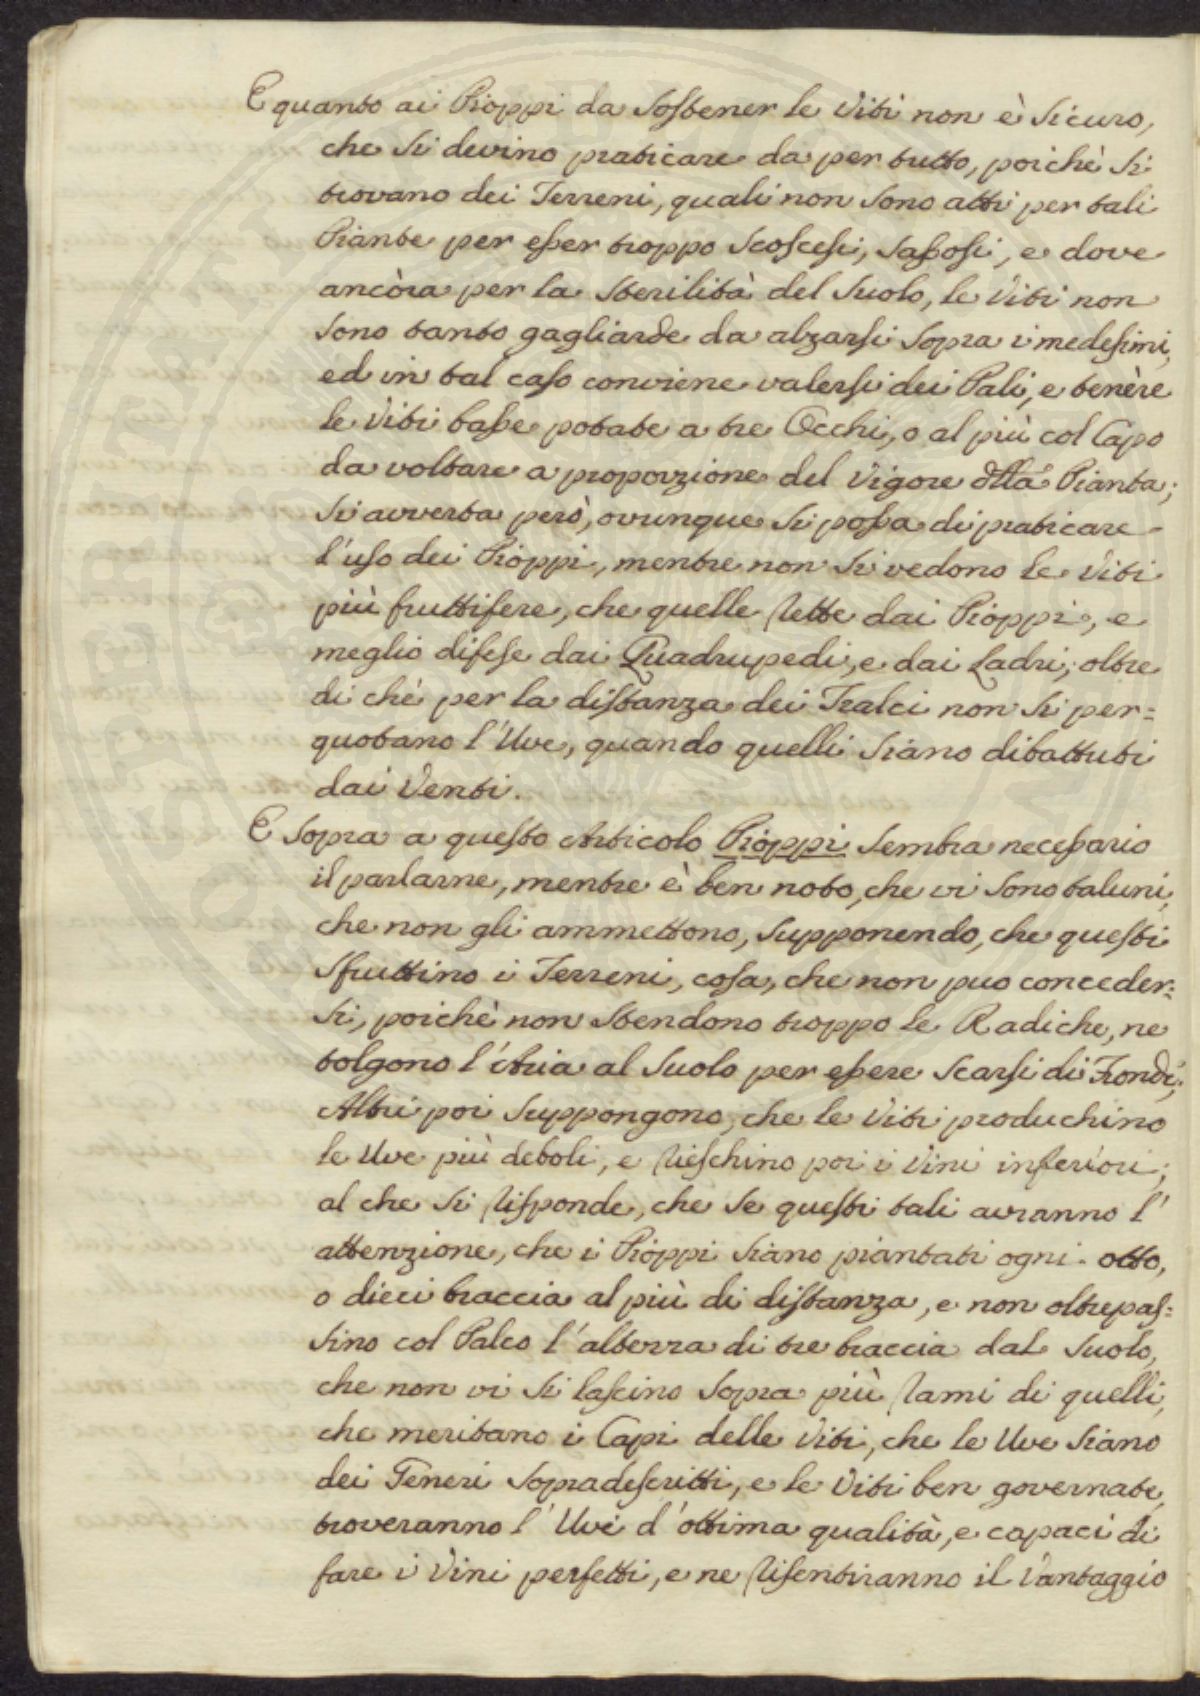 E quanto ai Pioppi da sostener le Viti non è sicuro,
che si devino praticare da per tutto, poichè si
trovano dei Terreni, quali non sono atti per tali
Piante per esser troppo scoscesi, sassosi, e dove
ancòra per la sterilità del suolo, le Viti non
sono tanto gagliarde da alzarsi sopra i medesimi,
ed in tal caso conviene valersi dei Pali, e tenère
le Viti basse potate a tre Occhi, o al più col Capo
da voltare a proporzione del Vigore dlla Pianta;
si avverta però, ovunque si possa di praticare
l'uso dei Pioppi, mentre non si vedono le Viti
più fruttifere, che quelle rette dai Pioppi, e
meglio difese dai Quadrupedi, e dai Ladri; oltre
di chè per la distanza dei Tralci non si per=
quotano l'Uve, quando quelli siano dibattuti
dai Venti.
E sopra a questo Articolo Pioppi sembra necessario
il parlarne, mentre è ben noto, che vi sono taluni,
che non gli ammettono, supponendo, che questi
sfruttino i Terreni, cosa, che non puo conceder=
si, poichè non stendono troppo le Radiche, ne
tolgono l'Aria al suolo per essere scarsi di Frondi;
Altri poi suppongono, che le Viti produchino
le Uve più deboli, e rieschino poi i Vini inferiori;
al che si risponde, che se questi tali avranno l'
attenzione, che i Pioppi siano piantati ogni otto,
o dieci braccia al più di distanza, e non oltrepas=
sino col Palco l'altezza di tre braccia dal suolo,
che non vi si lascino sopra più rami di quelli,
che meritano i Capi delle Viti, che le Uve siano
dei Generi sopradescritti, e le Viti ben governate,
troveranno l'Uve d'ottima qualità, e capaci di
fare i Vini perfetti, e ne risentiranno il Vantaggio